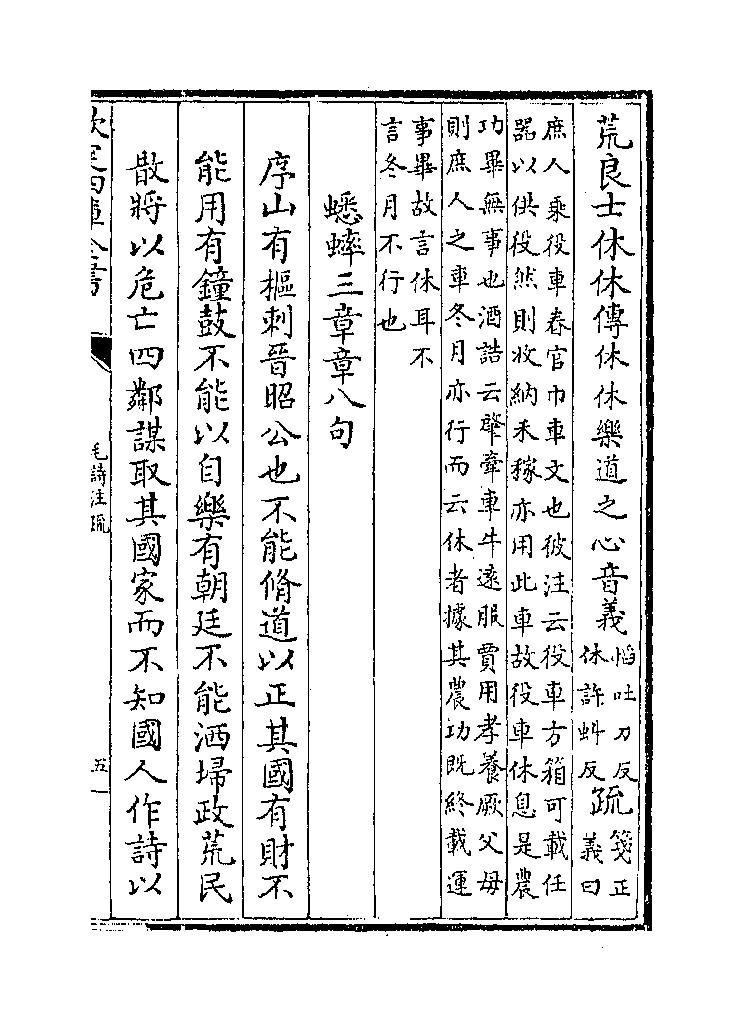 荒良士休休傳休休樂道之心音義慆吐刀反休許虯反疏箋正義曰
庶人乗役車春官巾車文也彼注云役車方箱可載任
器以供役然則收納禾稼亦用此車故役車休息是農
功畢無事也酒誥云肇牽車牛遠服賈用孝養厥父母
則庶人之車冬月亦行而云休者據其農功既終載運
事畢故言休耳不
言冬月不行也
蟋蟀三章章八句
序山有樞刺晉昭公也不能脩道以正其國有財不
能用有鐘鼓不能以自樂有朝廷不能洒埽政荒民
散將以危亡四鄰謀取其國家而不知國人作詩以
欽定四庫全書
毛詩注疏
五